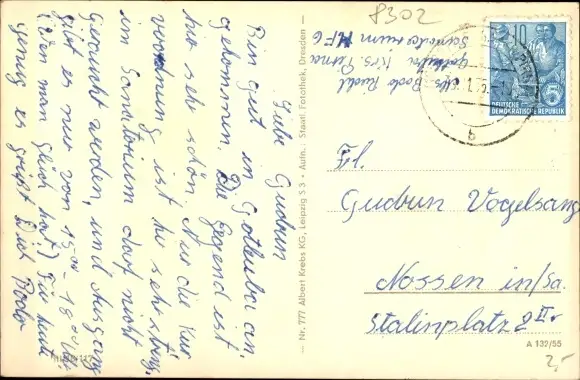 8302
Abs. Bodo Ruehl
Gottleuba Krs. Pirna
Sanatorium HF6
Liebe Gudrun
Bin gut in Gottleuba an,
gekommen. Die Gegend ist
hier sehr schön. Nur die Kur
verordnung ist hier sehr streng,
im Sanitorium darf nicht
geraucht werden, und Ausgang
gibt es nur von 15.00 - 18.00 Uhr
(Wen man glück hat) Für heute
genug es grüßt Dich Bodo
III/9/117
Nr. 777 Albert Krebs KG, Leipzig S 3 · Aufn.: Staatl. Fotothek, Dresden
10
5
DEUTSCHE
DEMOKRATISCHE REPUBLIK
b
Frl.
Gudrun Vogelsang
Nossen in/Sa.
Stalinplatz 2 II r
A 132/55
2,-